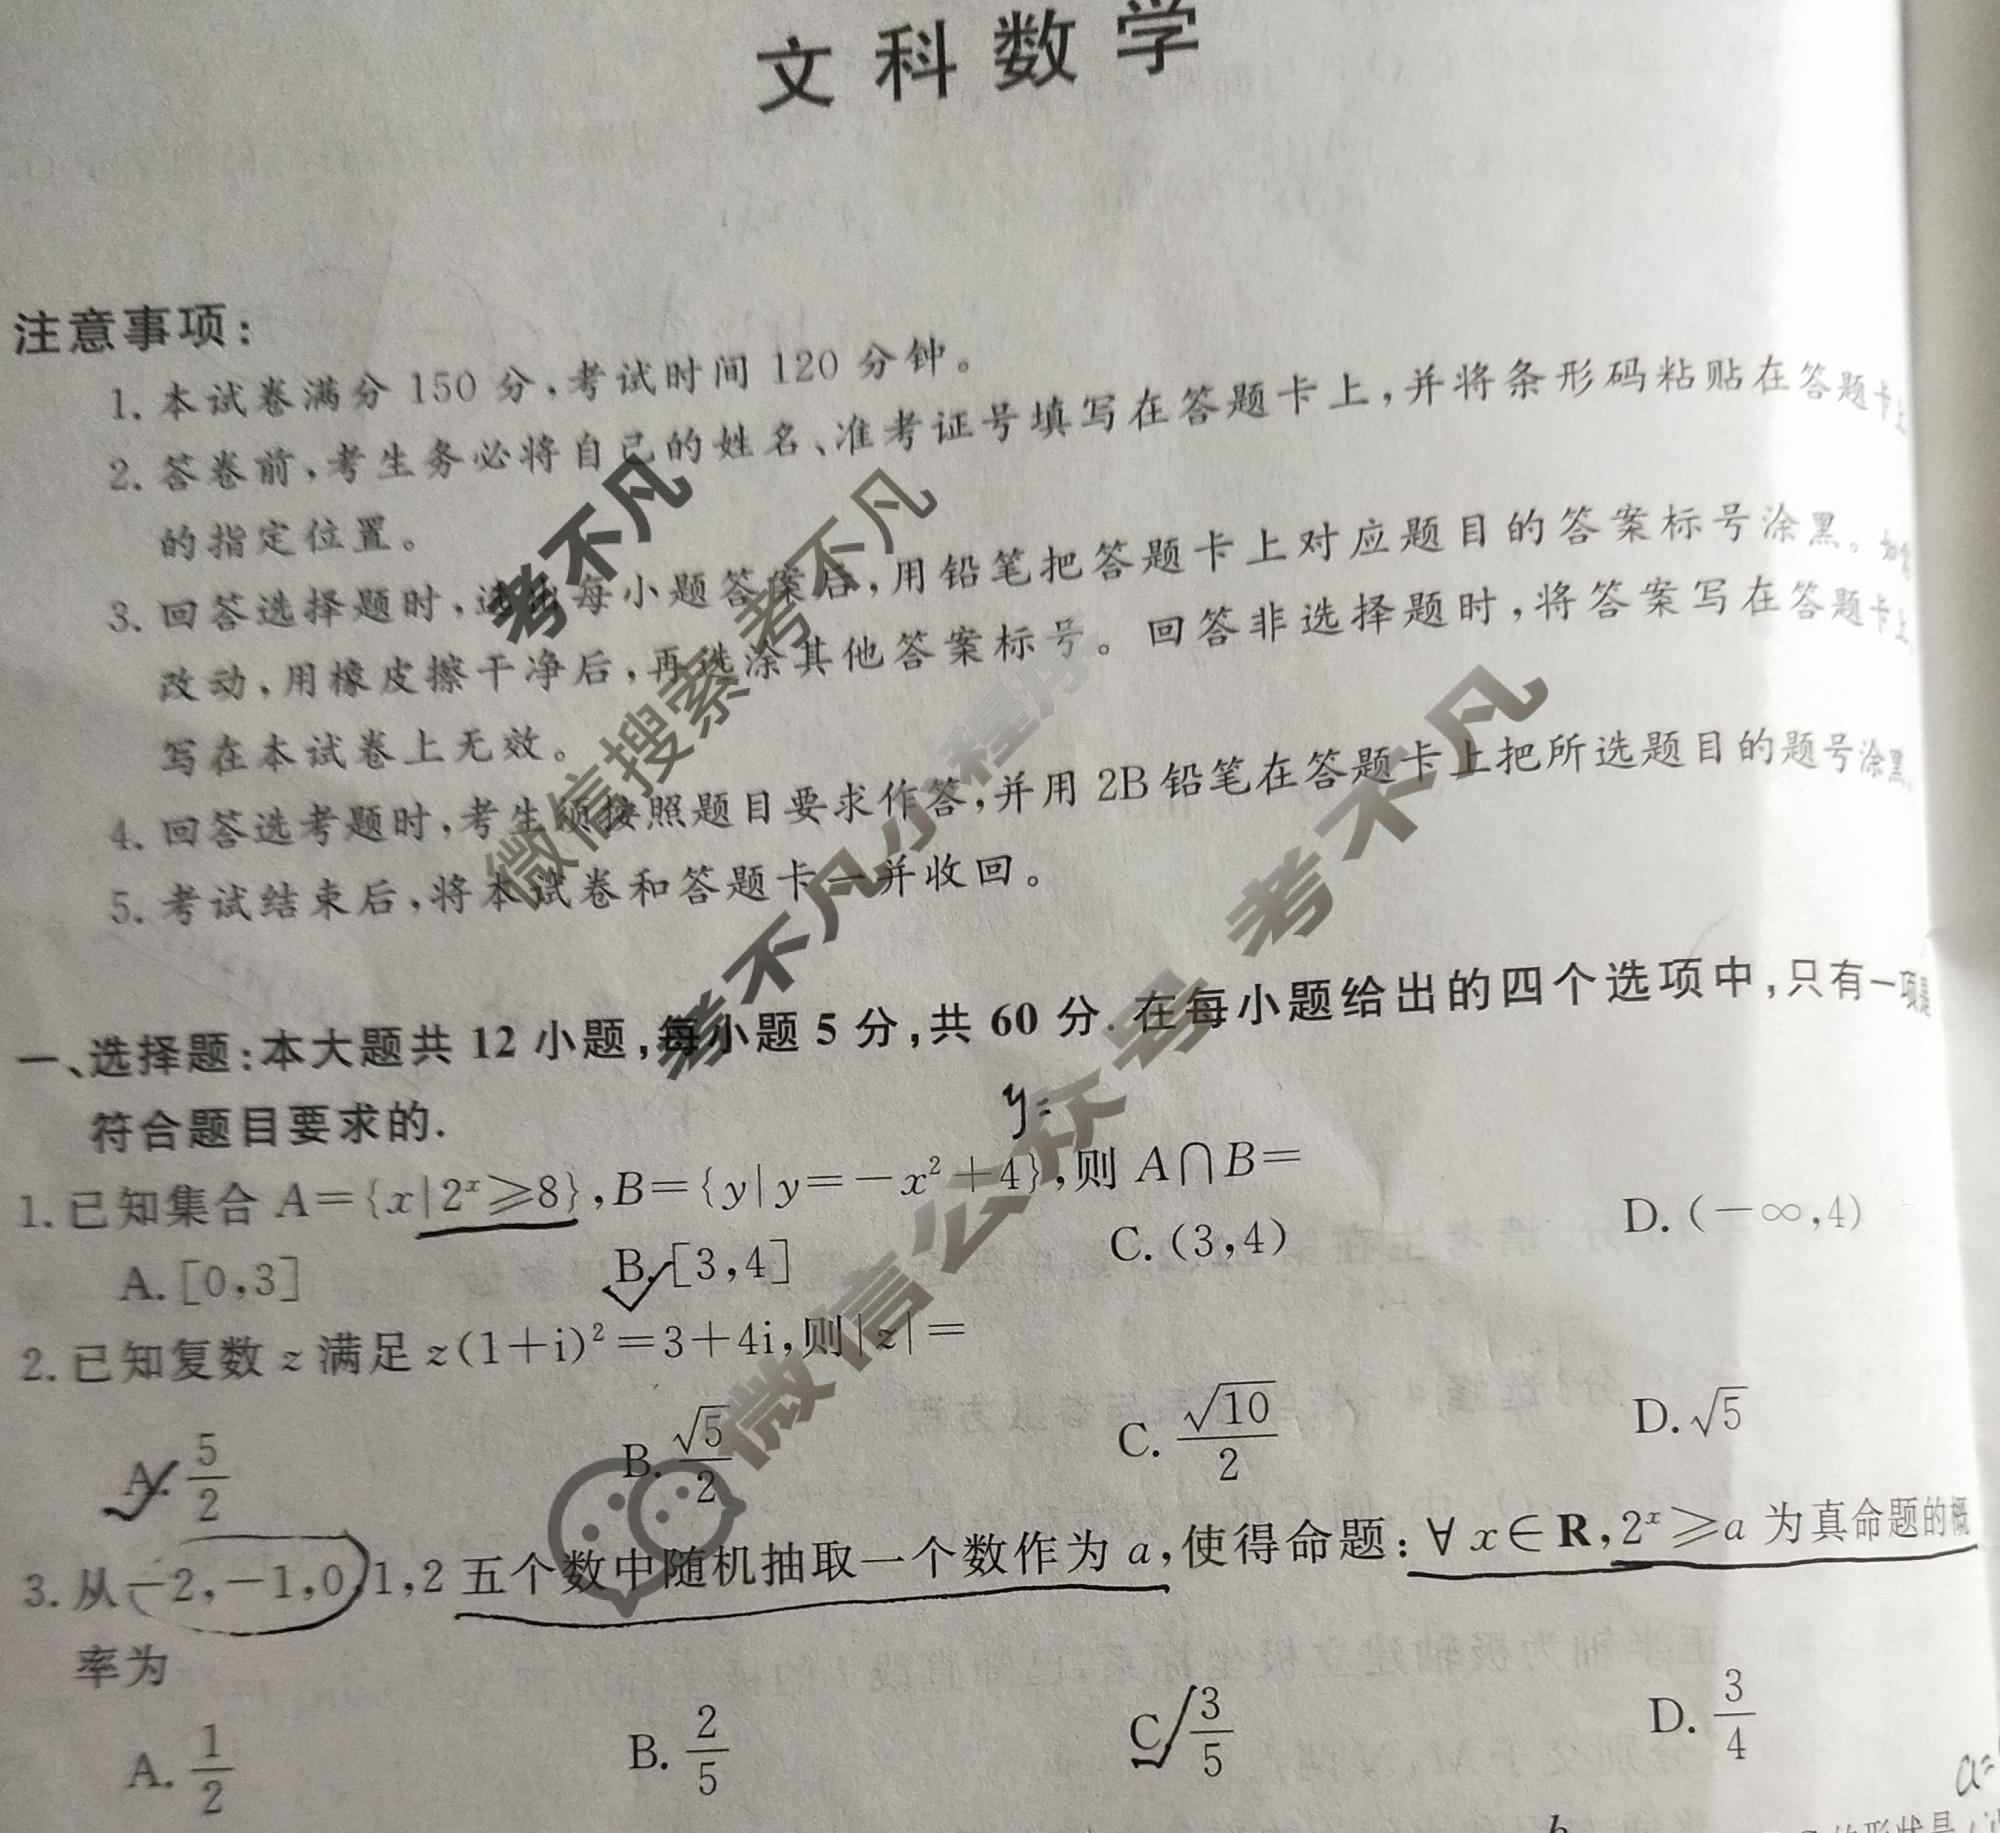 文科数学
注意事项:
1. 本试卷满分 150 分,考试时间 120 分钟。
2. 答卷前,考生务必将自己的姓名、准考证号填写在答题卡上,并将条形码粘贴在答题卡上
的指定位置。
3. 回答选择题时,选出每小题答案后,用铅笔把答题卡上对应题目的答案标号涂黑。如需
改动,用橡皮擦干净后,再选涂其他答案标号。回答非选择题时,将答案写在答题卡上
写在本试卷上无效。
4. 回答选考题时,考生须按照题目要求作答,并用 2B 铅笔在答题卡上把所选题目的题号涂黑
5. 考试结束后,将本试卷和答题卡一并收回。
一、选择题:本大题共 12 小题,每小题 5 分,共 60 分. 在每小题给出的四个选项中,只有一项是
符合题目要求的.
y=
1. 已知集合 A={x|2^x≥8},B={y|y=-x²+4},则 A∩B=
A. [0,3] B. [3,4] C. (3,4) D. (-∞,4)
2. 已知复数 z 满足 z(1+i)²=3+4i,则|z|=
A. 5/2 B. √5/2 C. √10/2 D. √5
3. 从-2,-1,0,1,2 五个数中随机抽取一个数作为 a,使得命题:∀x∈R,2^x≥a 为真命题的概
率为
A. 1/2 B. 2/5 C. 3/5 D. 3/4
a=
b
的形状是
考不凡
微信搜索 考不凡
考不凡小程序
微信公众号 考不凡